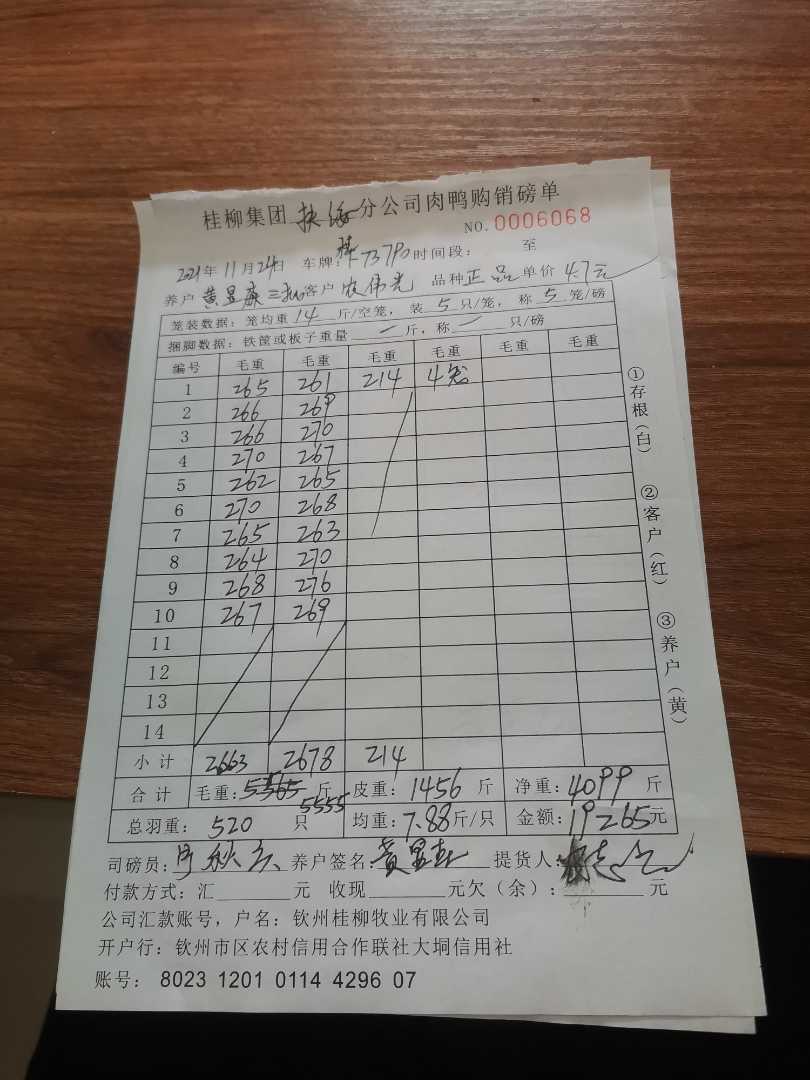 桂柳集团 分公司肉鸭购销磅单
NO.0006068
2021年11月24日 车牌:桂 73790 时间段: 至
养户 黄显康 客户 农伟光 品种 正品 单价 4.7元
笼装数据:笼均重 14 斤/空笼,装 5 只/笼,称 5 笼/磅
捆脚数据:铁筐或板子重量 一 斤,称 一 只/磅
编号 毛重 毛重 毛重 毛重 毛重 毛重
1 265 261 214 4笼
2 266 269
3 266 270
4 270 267
5 262 265
6 270 268
7 265 263
8 264 270
9 268 276
10 267 269
11
12
13
14
小计 2663 2678 214
合计 毛重: 5555 斤 皮重:1456 斤 净重:4099 斤
总羽重: 520 只 均重:7.88斤/只 金额:19265元
司磅员: 养户签名: 提货人:
付款方式:汇 元 收现 元欠(余): 元
公司汇款账号,户名:钦州桂柳牧业有限公司
开户行:钦州市区农村信用合作联社大垌信用社
账号: 8023 1201 0114 4296 07
①存根(白)
②客户(红)
③养户(黄)